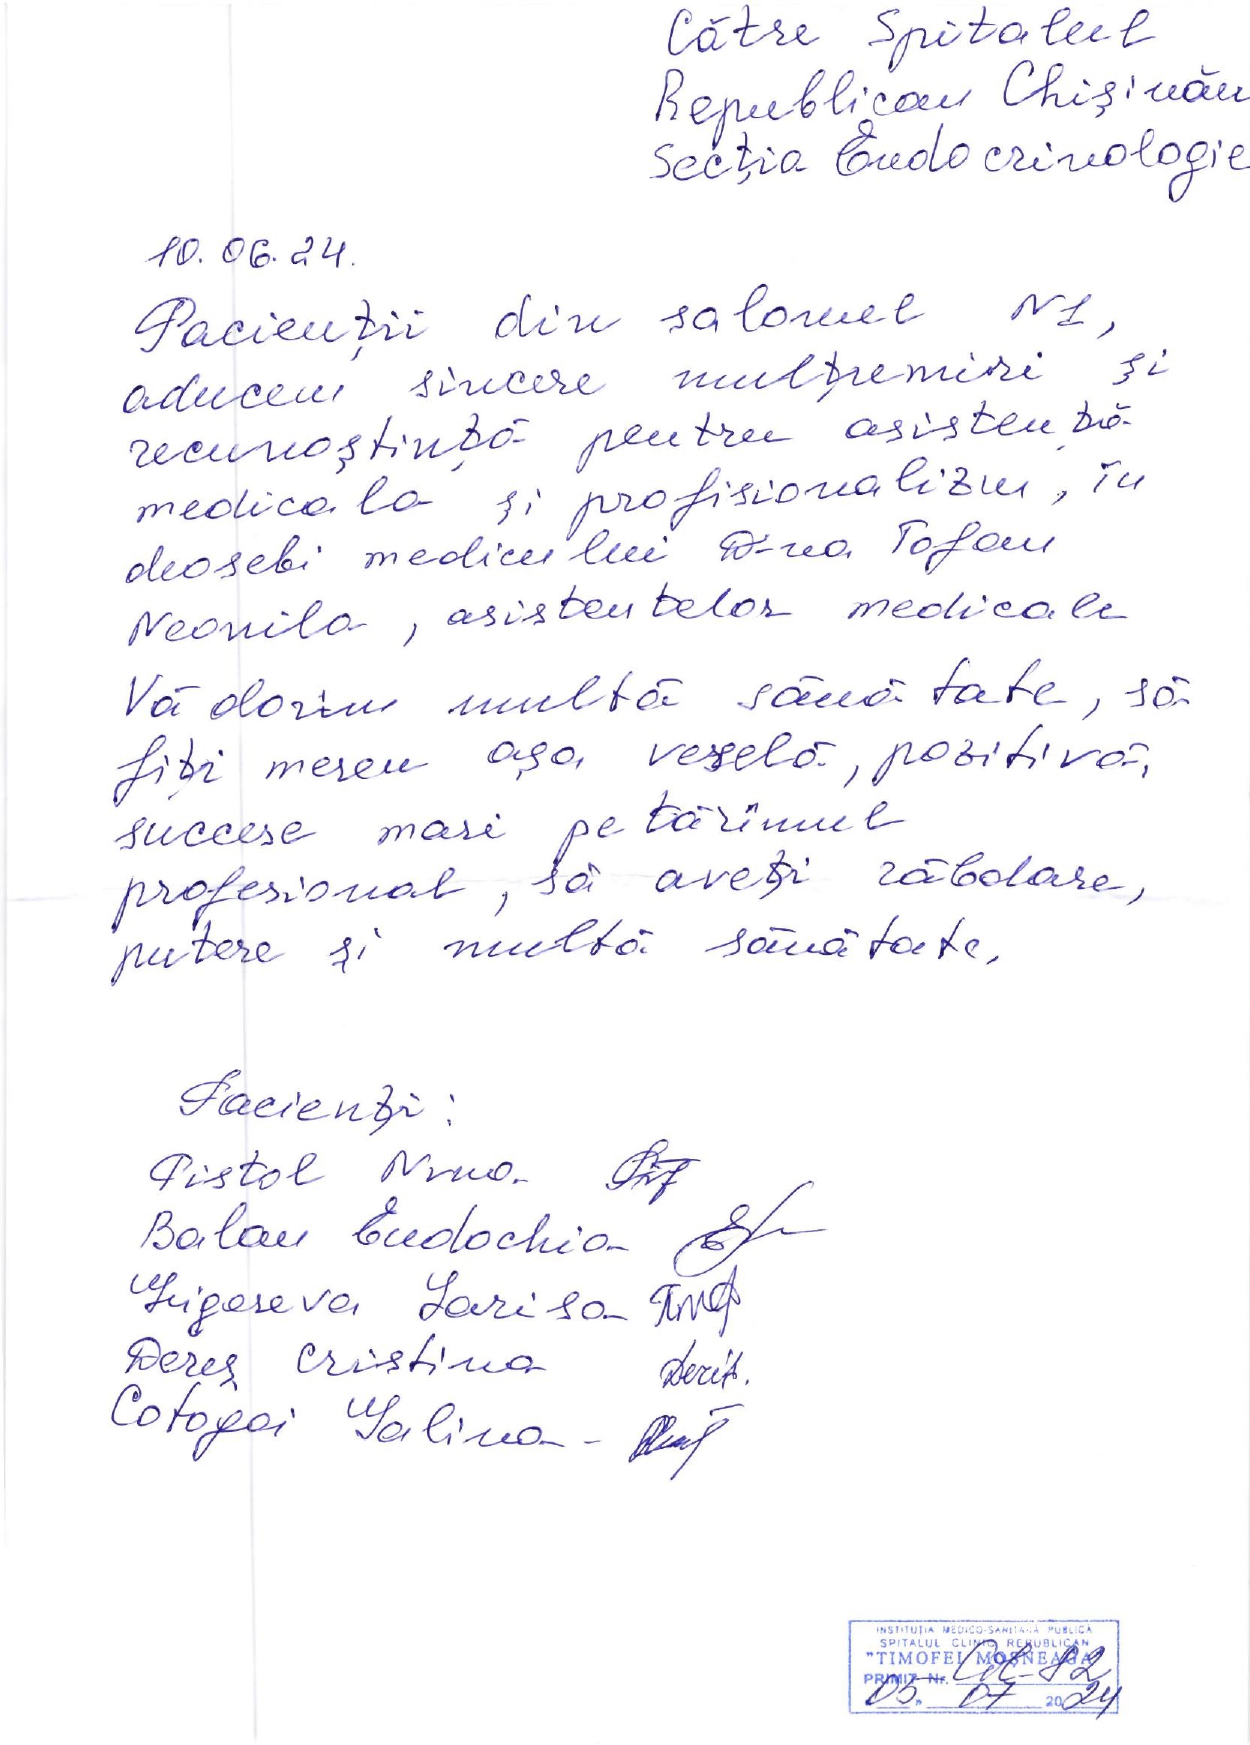 Către Spitalul
Republican Chişinău
Secţia Endocrinologie
10.06.24.
Pacienţii din salonul N1,
aducem sincere mulţremiri şi
recunoştinţă pentru asistenţă
medicala şi profisionalizm, în
deosebi medicului D-na Tofan
Neonila, asistentelor medicale
Vă dorim multă sănătate, să
fiţi mereu aşa veselă, pozitivă,
succese mari pe tărîmul
profesional, să aveţi răbdare,
putere şi multă sănătate.
Pacienţi:
Pistol Nina
Balan Eudochia
Larisa
Dereş Cristina
Cotogoi Galina -
INSTITUŢIA MEDICO-SANITARĂ PUBLICĂ
SPITALUL CLINIC REPUBLICAN
"TIMOFEI MOŞNEAGA"
PRIMIT Nr.
05 " 07 2024